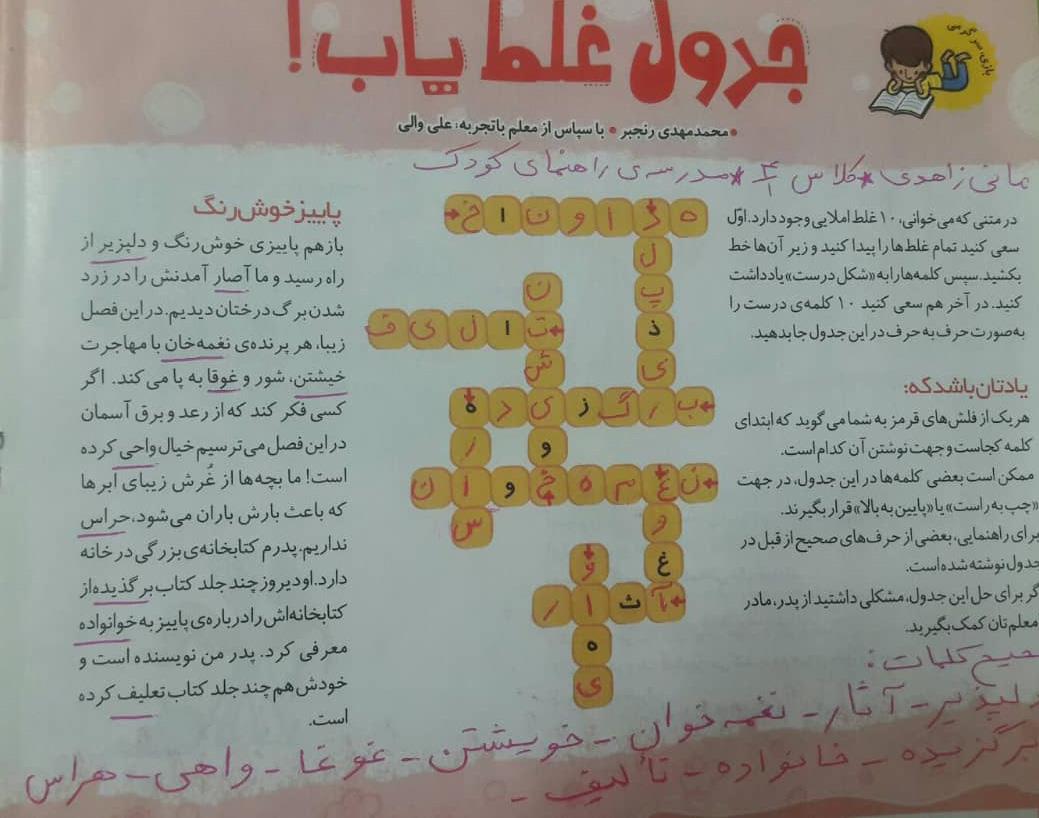 جدول غلط یاب!
بازی، سرگرمی
•محمدمهدی رنجبر • با سپاس از معلم باتجربه: علی والی
مانی زاهدی * کلاس ۴/۱ * مدرسه ی راهنمای کودک
در متنی که می‌خوانی، ۱۰ غلط املایی وجود دارد. اوّل
سعی کنید تمام غلط‌ها را پیدا کنید و زیر آن‌ها خط
بکشید. سپس کلمه‌ها را به «شکل درست» یادداشت
کنید. در آخر هم سعی کنید ۱۰ کلمه‌ی درست را
به‌صورت حرف به حرف در این جدول جا بدهید.
یادتان باشد که:
هر یک از فلش‌های قرمز به شما می گوید که ابتدای
کلمه کجاست و جهت نوشتن آن کدام است.
ممکن است بعضی کلمه‌ها در این جدول، در جهت
«چپ به راست» یا «پایین به بالا» قرار بگیرند.
برای راهنمایی، بعضی از حرف‌های صحیح از قبل در
جدول نوشته شده است.
گر برای حل این جدول، مشکلی داشتید از پدر، مادر
معلم‌تان کمک بگیرید.
خ ا ن و ا د ه
ل
ن پ
ف ی ل ا ت ذ
ش ی
ه د ی ز گ ر ب
ر و
ن ا و خ ه م غ ن
س و
و غ
ر ا ث آ
ه
ی
پاییز خوش رنگ
باز هم پاییزی خوش رنگ و دلپزیر از
راه رسید و ما آصار آمدنش را در زرد
شدن برگ درختان دیدیم. در این فصل
زیبا، هر پرنده‌ی نغمه‌خان با مهاجرت
خیشتن، شور و غوقا به پا می کند. اگر
کسی فکر کند که از رعد و برق آسمان
در این فصل می‌ترسیم خیال واحی کرده
است! ما بچه‌ها از غُرش زیبای ابرها
که باعث بارش باران می‌شود، حراس
نداریم. پدرم کتابخانه‌ی بزرگی در خانه
دارد. او دیروز چند جلد کتاب برگذیده از
کتابخانه‌اش را درباره‌ی پاییز به خوانواده
معرفی کرد. پدر من نویسنده است و
خودش هم چند جلد کتاب تعلیف کرده
است.
صحیح کلمات:
دلپذیر - آثار - نغمه خوان - خویشتن - غوغا - واهی - هراس
برگزیده - خانواده - تألیف -